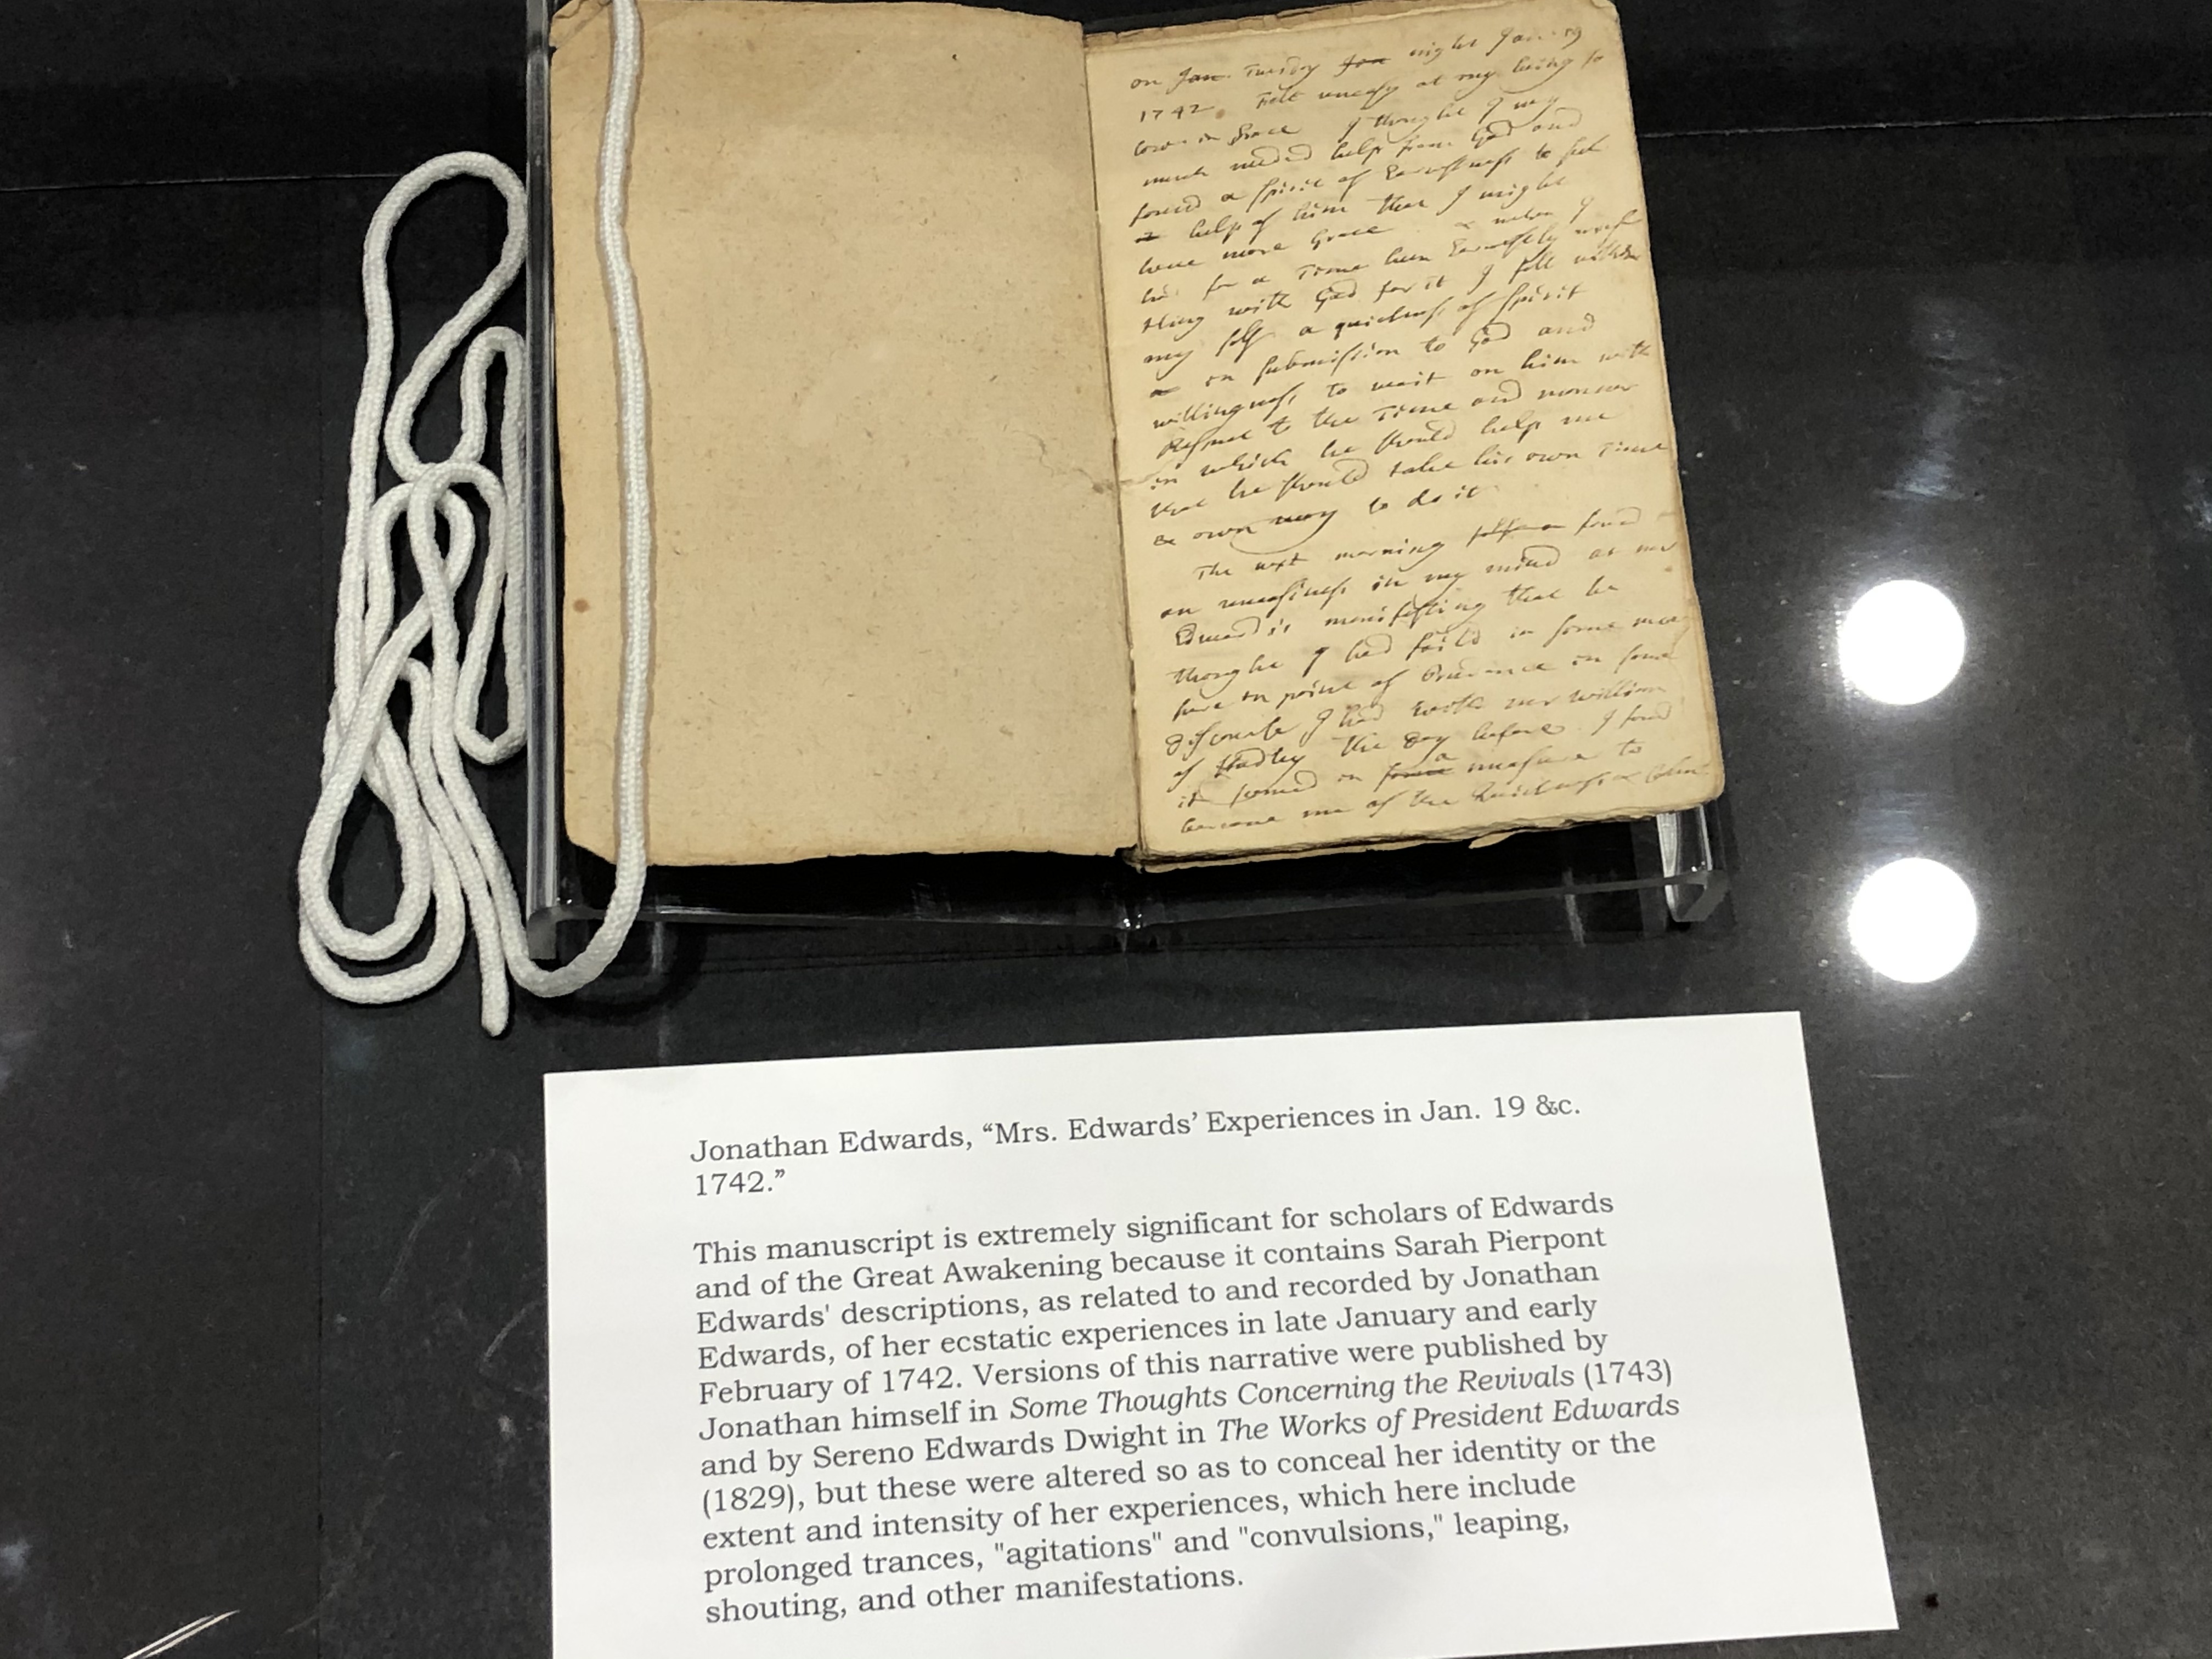 on Jan. Tuesday Jan night Jan. 19
1742. Felt uneasy at my being so
low in Grace I thought I my
much needed help from God and
found a spirit of Earnestness to seek
help of him that I might
have more Grace & when I
had for a Time been Earnestly wrest
tling with God for it I felt within
my self a quietness of spirit
in submission to God and
willingness to wait on him with
Respect to the Time and manner
in which he should help me
that he should take his own Time
& own way to do it
The next morning found
an uneasiness in my mind at mr
Edwards's manifesting that he
thought I had faild in some mea
sure in point of Prudence in some
discourse I had with mr William
of Hadley the day before I found
it seemed in some a measure to
bereave me of the Quietness &
Jonathan Edwards, “Mrs. Edwards’ Experiences in Jan. 19 &c.
1742.”
This manuscript is extremely significant for scholars of Edwards
and of the Great Awakening because it contains Sarah Pierpont
Edwards' descriptions, as related to and recorded by Jonathan
Edwards, of her ecstatic experiences in late January and early
February of 1742. Versions of this narrative were published by
Jonathan himself in Some Thoughts Concerning the Revivals (1743)
and by Sereno Edwards Dwight in The Works of President Edwards
(1829), but these were altered so as to conceal her identity or the
extent and intensity of her experiences, which here include
prolonged trances, "agitations" and "convulsions," leaping,
shouting, and other manifestations.